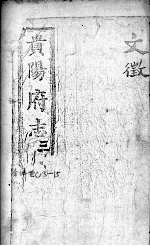 文徵
貴陽府志